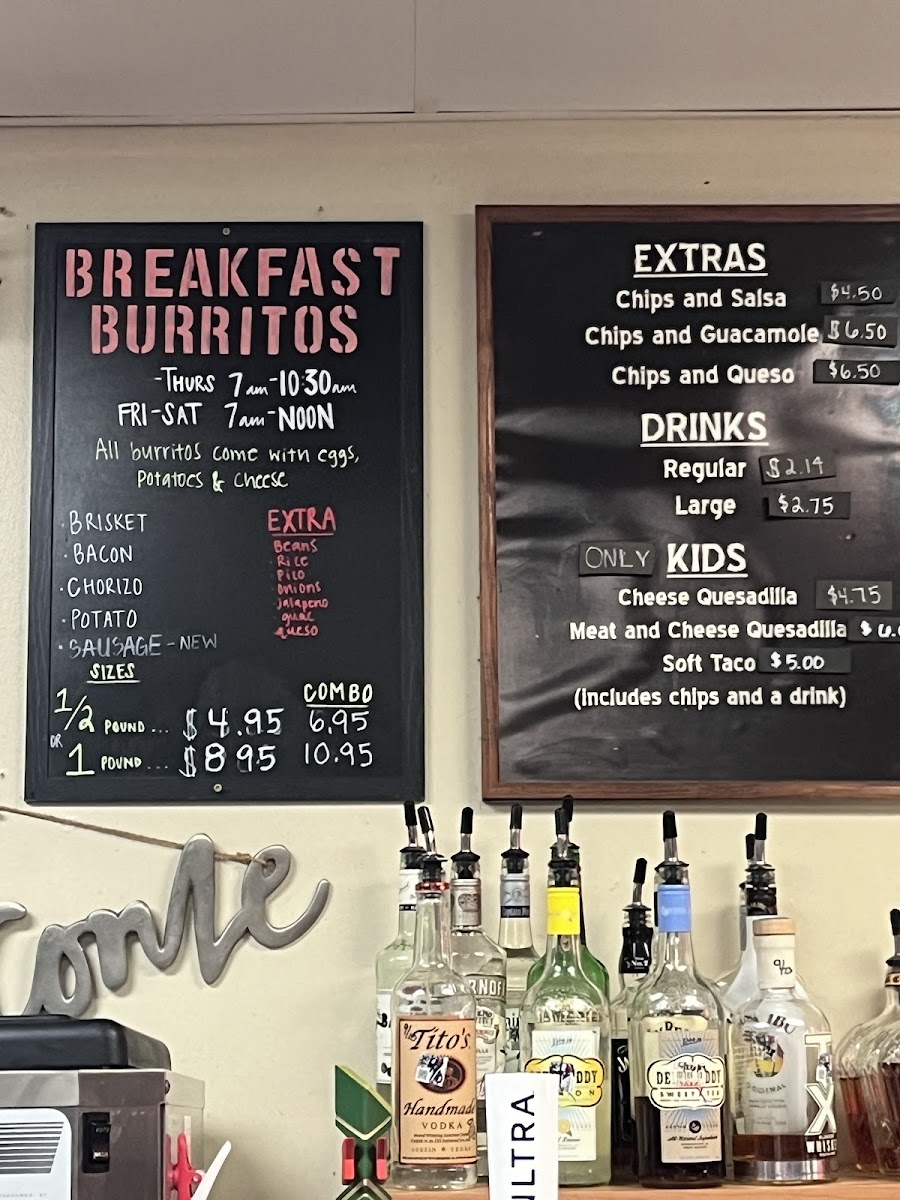 BREAKFAST
BURRITOS
-THURS 7am-10:30am
FRI-SAT 7am-NOON
All burritos come with eggs,
Potatoes & cheese
· BRISKET
· BACON
· CHORIZO
· POTATO
· SAUSAGE - NEW
EXTRA
Beans
Rice
Pico
Onions
Jalapeno
guac
queso
SIZES
COMBO
1/2 POUND... $4.95 6.95
OR
1 POUND.... $8.95 10.95
EXTRAS
Chips and Salsa $4.50
Chips and Guacamole $6.50
Chips and Queso $6.50
DRINKS
Regular $2.14
Large $2.75
ONLY KIDS
Cheese Quesadilla $4.75
Meat and Cheese Quesadilla
Soft Taco $5.00
(includes chips and a drink)
Tito's
Handmade
VODKA
DDY
DE DDY
SWEET TEA
ULTRA